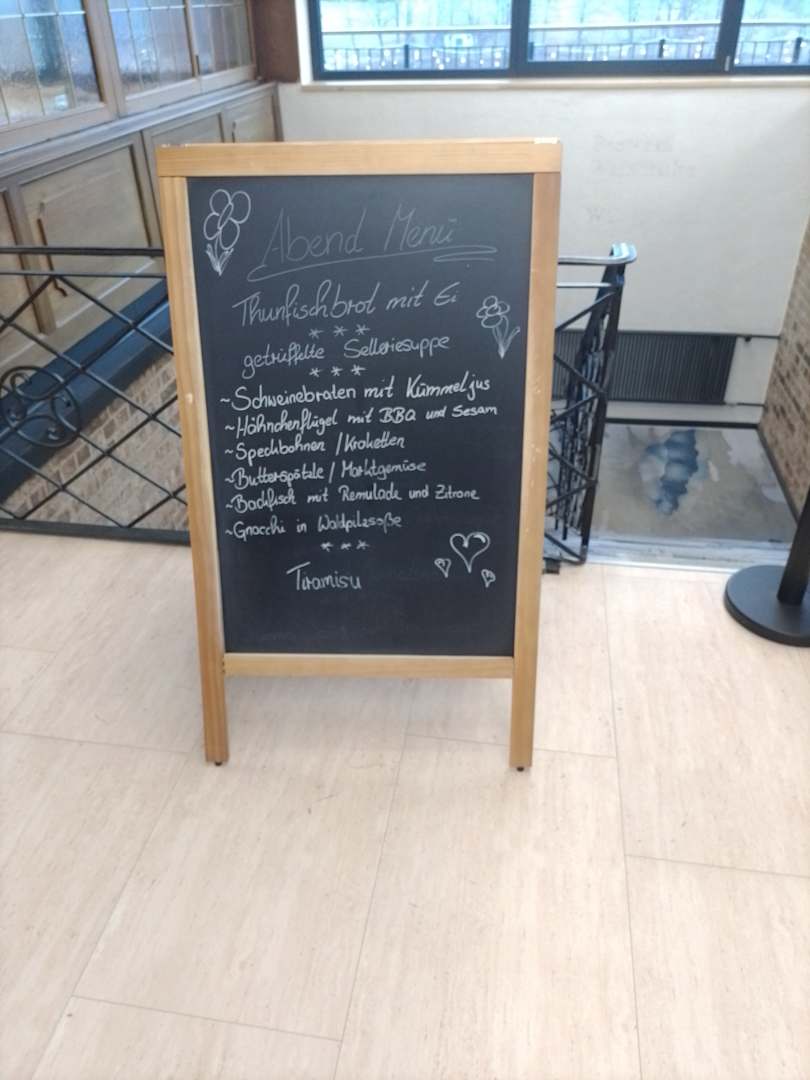 Abend Menü
Thunfischbrot mit Ei
* * *
getrüffelte Selleriesuppe
* * *
~Schweinebraten mit Kümmeljus
~Hähnchenflügel mit BBQ und Sesam
~Speckbohnen / Kroketten
~Butterspätzle / Marktgemüse
~Backfisch mit Remulade und Zitrone
~Gnocchi in Waldpilzsoße
* * *
Tiramisu